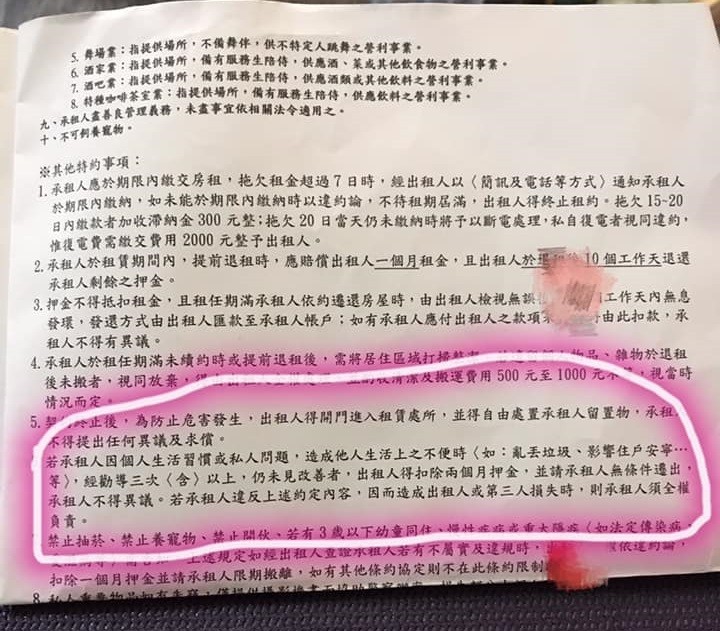 5. 舞場業：指提供場所，不備舞伴，供不特定人跳舞之營利事業。
6. 酒家業：指提供場所，備有服務生陪侍，供應酒、菜或其他飲食物之營利事業。
7. 酒吧業：指提供場所，備有服務生陪侍，供應酒類或其他飲料之營利事業。
8. 特種咖啡茶室業：指提供場所，備有服務生陪侍，供應飲料之營利事業。
九、承租人盡善良管理義務，未盡事宜依相關法令適用之。
十、不可飼養寵物。
※其他特約事項：
1. 承租人應於期限內繳交房租，拖欠租金超過 7 日時，經出租人以〈簡訊及電話等方式〉通知承租人
於期限內繳納，如未能於期限內繳納時以違約論，不待租期屆滿，出租人得終止租約。拖欠 15~20
日內繳款者加收滯納金 300 元整；拖欠 20 日當天仍未繳納時將予以斷電處理，私自復電者視同違約，
惟復電費需繳交費用 2000 元整予出租人。
2. 承租人於租賃期間內，提前退租時，應賠償出租人一個月租金，且出租人於退租後 10 個工作天退還
承租人剩餘之押金。
3. 押金不得抵扣租金，且租任期滿承租人依約遷還房屋時，由出租人檢視無誤 個工作天內無息
發環，發還方式由出租人匯款至承租人帳戶；如有承租人應付出租人之款項 由此扣款，承
租人不得有異議。
4. 承租人於租任期滿未續約時或提前退租後，需將居住區域打掃 物品、雜物於退租
後未搬者，視同放棄， 清潔及搬運費用 500 元至 1000 元 ，視當時
情況而定。
5. 契約終止後，為防止危害發生，出租人得開門進入租賃處所，並得自由處置承租人留置物，承租
不得提出任何異議及求償。
若承租人因個人生活習慣或私人問題，造成他人生活上之不便時〈如：亂丟垃圾、影響住戶安寧…
等〉，經勸導三次〈含〉以上，仍未見改善者，出租人得扣除兩個月押金，並請承租人無條件遷出，
承租人不得異議。若承租人違反上述約定內容，因而造成出租人或第三人損失時，則承租人須全權
負責。
禁止抽菸、禁止養寵物、禁止開伙、若有 3 歲以下幼童同住、慢性疾病或重大隱疾〈如法定傳染病，
上述規定如經出租人查證承租人若有不屬實及違規時， 依違約論，
扣除一個月押金並請承租人限期搬離，如有其他條約協定則不在此條約限制
8. 私人重要物品如有失竊，僅提供攝影